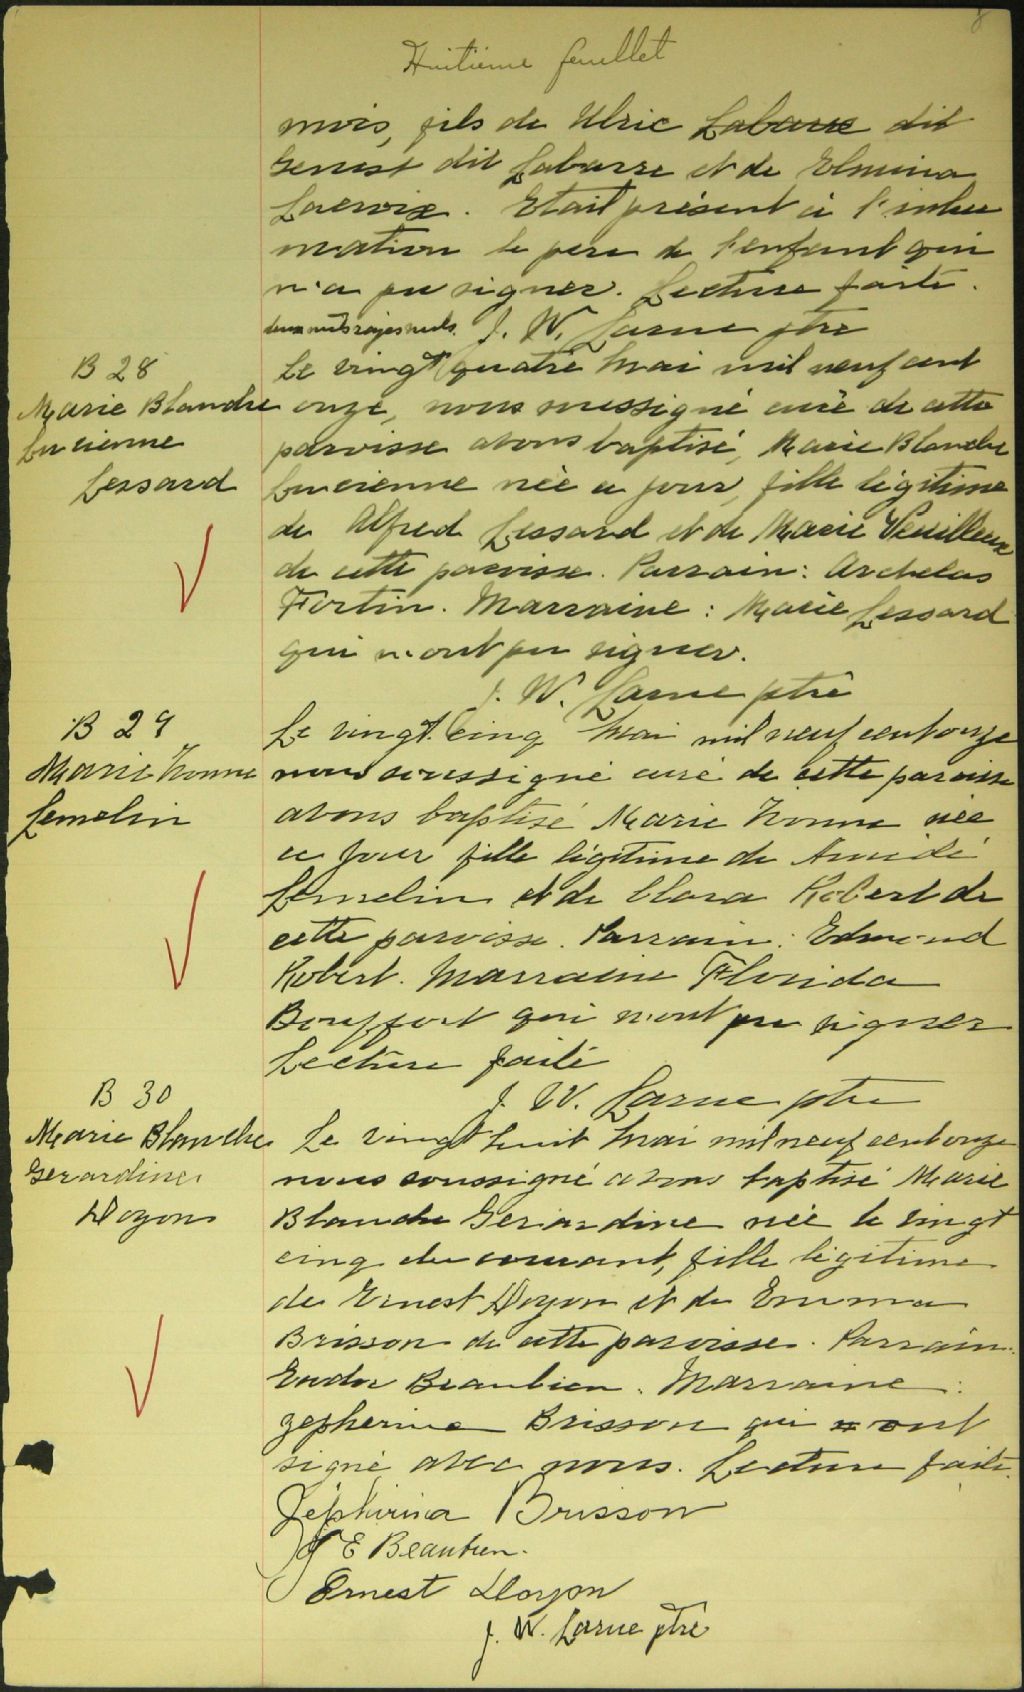 8
Huitième feuillet
mois, fils de Ulric Labarre dit
Genest dit Labarre et de Elmina
Lacroix. Etait présent à l'inhu
mation le père de l'enfant qui
n'a pu signer. Lecture faite.
deux mots rayés nuls. J. W. Larue ptre
B 28
Marie Blanche
Lucienne
Lessard
Le vingt quatre Mai mil neuf cent
onze, nous soussigné curé de cette
paroisse avons baptisé, Marie Blanche
Lucienne née ce jour, fille légitime
de Alfred Lessard et de Marie Veuilleux
de cette paroisse. Parrain: Archelas
Fortin. Marraine: Marie Lessard
qui n'ont pu signer.
J. W. Larue ptre
B 29
Marie Yvonne
Lemelin
Le vingt cinq Mai mil neuf cent onze
nous soussigné curé de cette paroisse
avons baptisé Marie Yvonne née
ce jour fille légitime de Amédé
Lemelin et de Clara Robert de
cette paroisse. Parrain: Edmond
Robert. Marraine Florida
Bouffort qui n'ont pu signer
Lecture faite
J. W. Larue ptre
B 30
Marie Blanche
Gerardine
Doyon
Le vingt huit Mai mil neuf cent onze
nous soussigné avons baptisé Marie
Blanche Gerardine née le vingt
cinq du courant, fille légitime
de Ernest Doyon et de Emma
Brisson de cette paroisse. Parrain:
Beaubien. Marraine:
Zepherina Brisson qui ont
signé avec nous. Lecture faite.
Zéphirina Brisson
J E Beaubien.
Ernest Doyon
J. W. Larue ptre